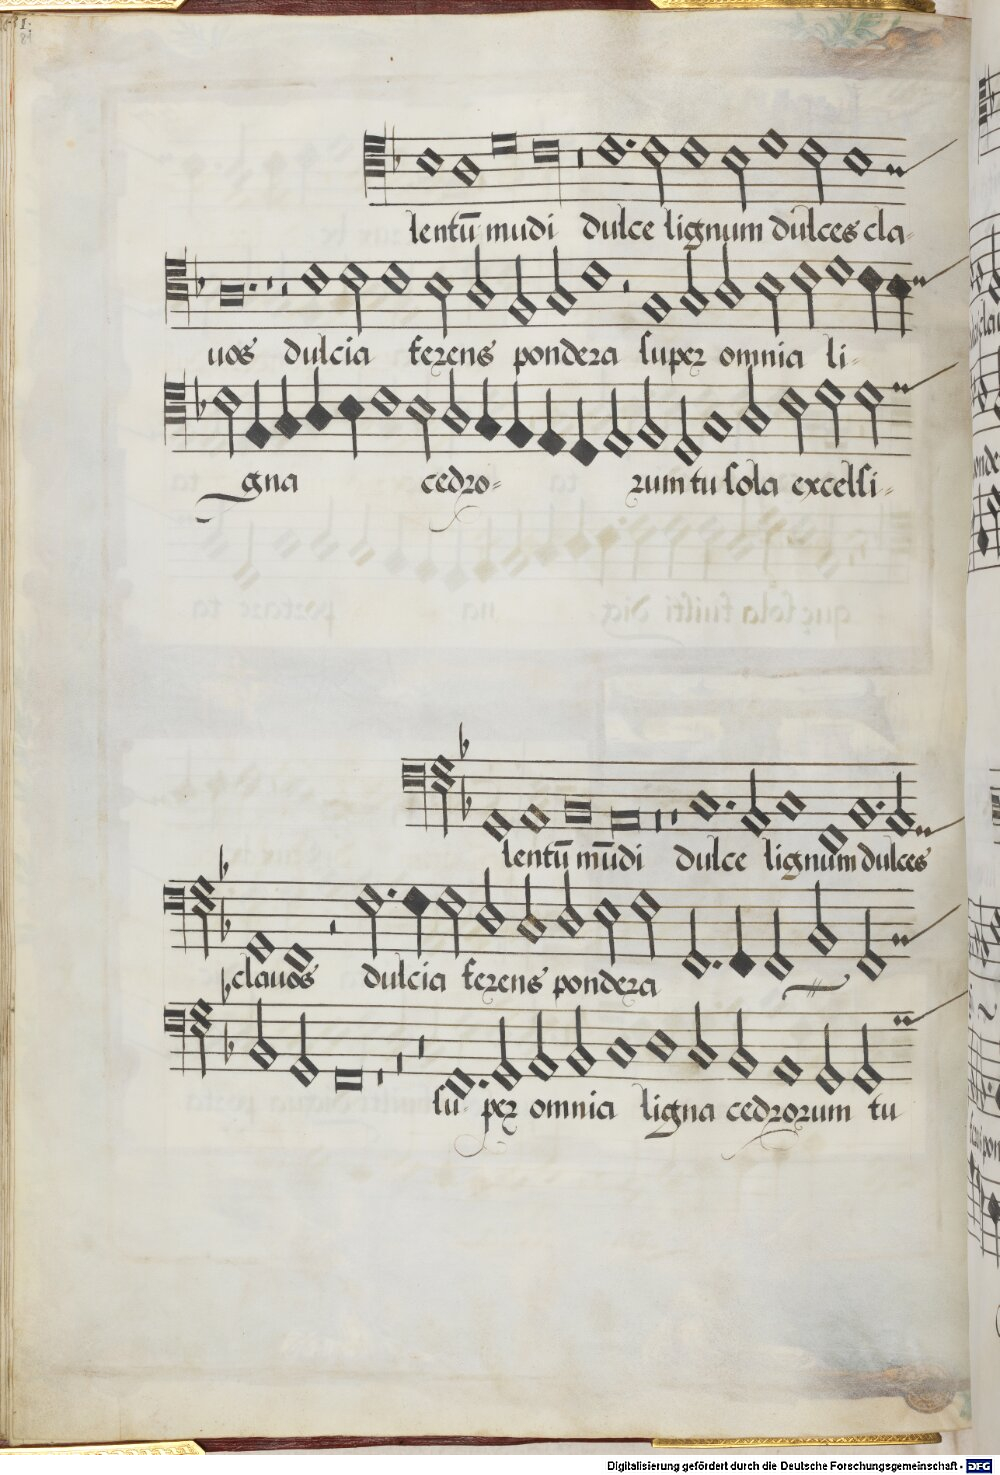 lentū mudi dulce lignum dulces cla-
uos dulcia ferens pondera super omnia li-
gna cedro- rum tu sola excelsi-
lentū mūdi dulce lignum dulces
clauos dulcia ferens pondera
su- per omnia ligna cedrorum tu
Digitalisierung gefördert durch die Deutsche Forschungsgemeinschaft - DFG